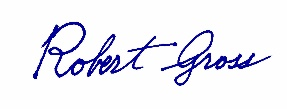 Robert Gross